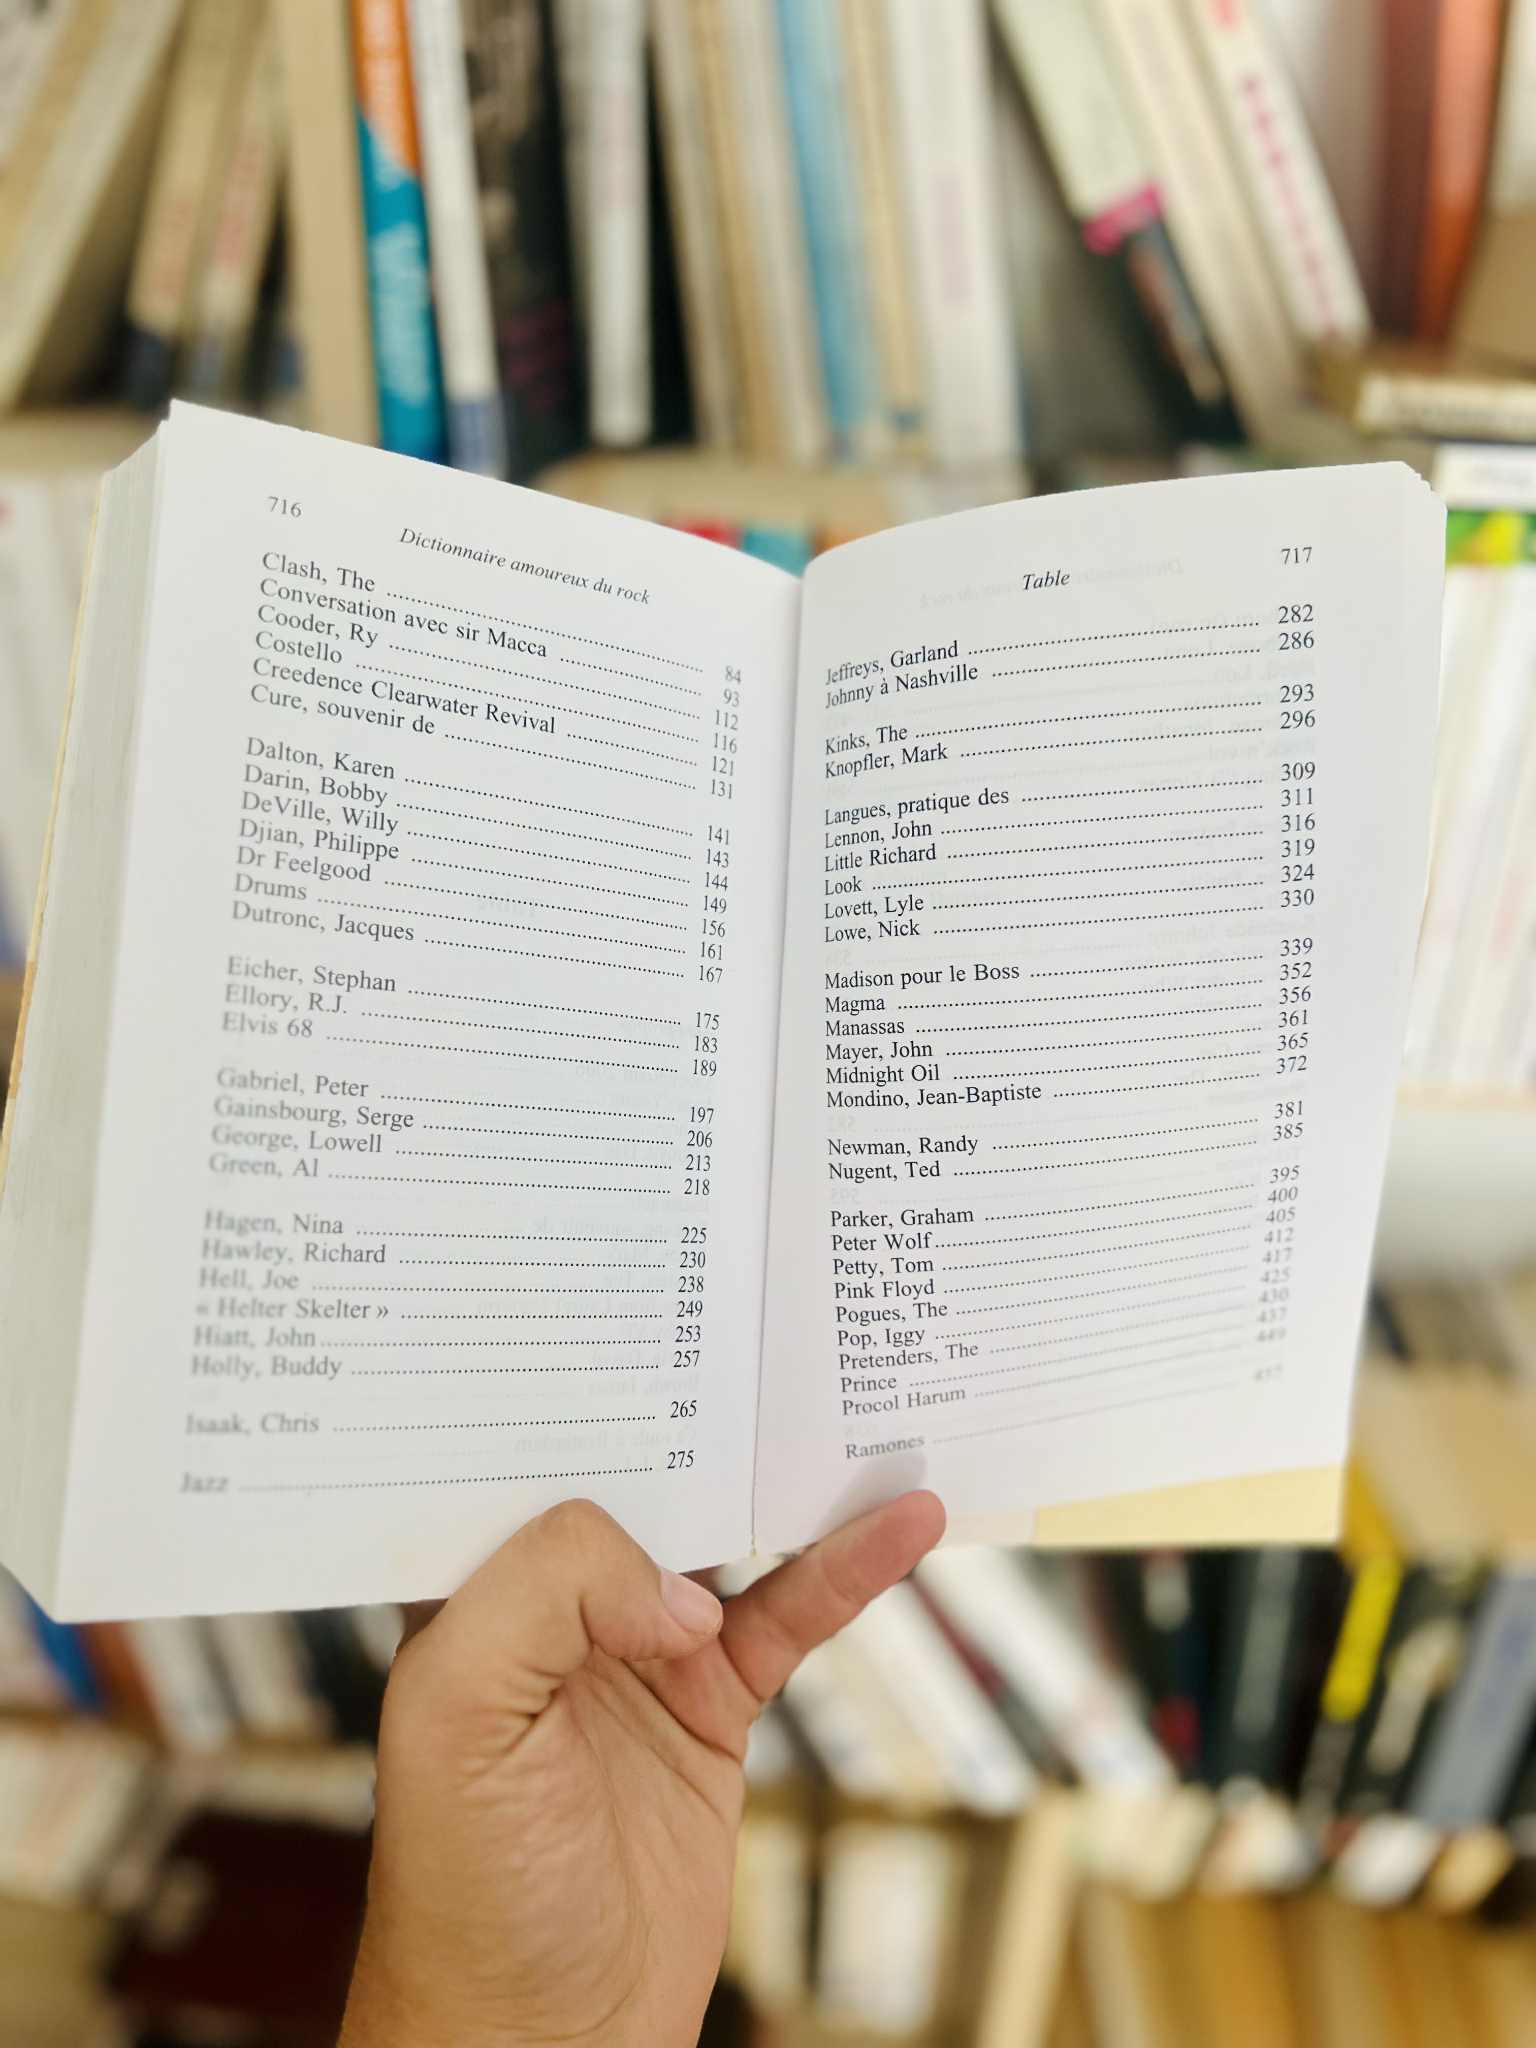 716
Dictionnaire amoureux du rock
Clash, The ........ 84
Conversation avec sir Macca ........ 93
Cooder, Ry ........ 112
Costello ........ 116
Creedence Clearwater Revival ........ 121
Cure, souvenir de ........ 131
Dalton, Karen ........ 141
Darin, Bobby ........ 143
DeVille, Willy ........ 144
Djian, Philippe ........ 149
Dr Feelgood ........ 156
Drums ........ 161
Dutronc, Jacques ........ 167
Eicher, Stephan ........ 175
Ellory, R.J. ........ 183
Elvis 68 ........ 189
Gabriel, Peter ........ 197
Gainsbourg, Serge ........ 206
George, Lowell ........ 213
Green, Al ........ 218
Hagen, Nina ........ 225
Hawley, Richard ........ 230
Hell, Joe ........ 238
« Helter Skelter » ........ 249
Hiatt, John ........ 253
Holly, Buddy ........ 257
Isaak, Chris ........ 265
Jazz ........ 275
Table
717
Jeffreys, Garland ........ 282
Johnny à Nashville ........ 286
Kinks, The ........ 293
Knopfler, Mark ........ 296
Langues, pratique des ........ 309
Lennon, John ........ 311
Little Richard ........ 316
Look ........ 319
Lovett, Lyle ........ 324
Lowe, Nick ........ 330
Madison pour le Boss ........ 339
Magma ........ 352
Manassas ........ 356
Mayer, John ........ 361
Midnight Oil ........ 365
Mondino, Jean-Baptiste ........ 372
Newman, Randy ........ 381
Nugent, Ted ........ 385
Parker, Graham ........ 395
Peter Wolf ........ 400
Petty, Tom ........ 405
Pink Floyd ........ 412
Pogues, The ........ 417
Pop, Iggy ........ 425
Pretenders, The ........ 430
Prince ........ 437
Procol Harum ........ 449
Ramones ........